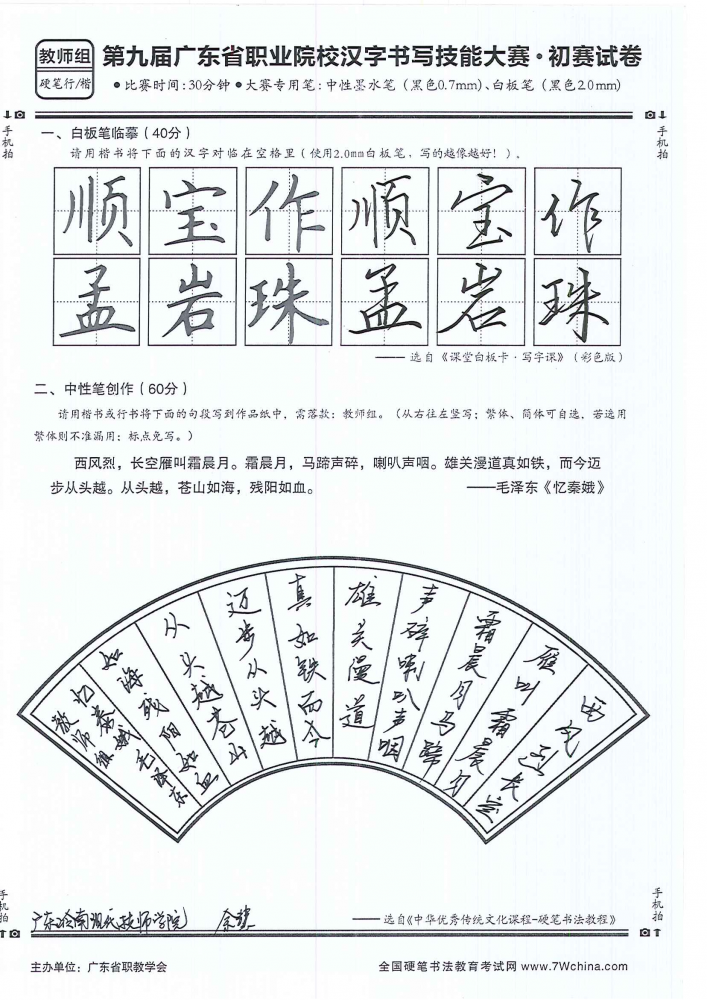 教师组
硬笔行/楷
第九届广东省职业院校汉字书写技能大赛·初赛试卷
●比赛时间:30分钟 ●大赛专用笔:中性墨水笔(黑色0.7mm)、白板笔(黑色2.0mm)
手机拍
手机拍
一、白板笔临摹(40分)
请用楷书将下面的汉字对临在空格里(使用2.0mm白板笔,写的越像越好!)。
顺宝作顺宝作
孟岩珠孟岩珠
——选自《课堂白板卡·写字课》(彩色版)
二、中性笔创作(60分)
请用楷书或行书将下面的句段写到作品纸中,需落款:教师组。(从右往左竖写;繁体、简体可自选,若选用
繁体则不准漏用;标点免写。)
西风烈,长空雁叫霜晨月。霜晨月,马蹄声碎,喇叭声咽。雄关漫道真如铁,而今迈
步从头越。从头越,苍山如海,残阳如血。 ——毛泽东《忆秦娥》
西风烈长空
雁叫霜晨月
霜晨月马蹄
声碎喇叭声咽
雄关漫道
真如铁而今
迈步从头越
从头越苍山
如海残阳如血
忆秦娥毛泽东
教师组
手机拍
手机拍
广东岭南现代技师学院 余
——选自《中华优秀传统文化课程-硬笔书法教程》
主办单位:广东省职教学会
全国硬笔书法教育考试网 www.7Wchina.com